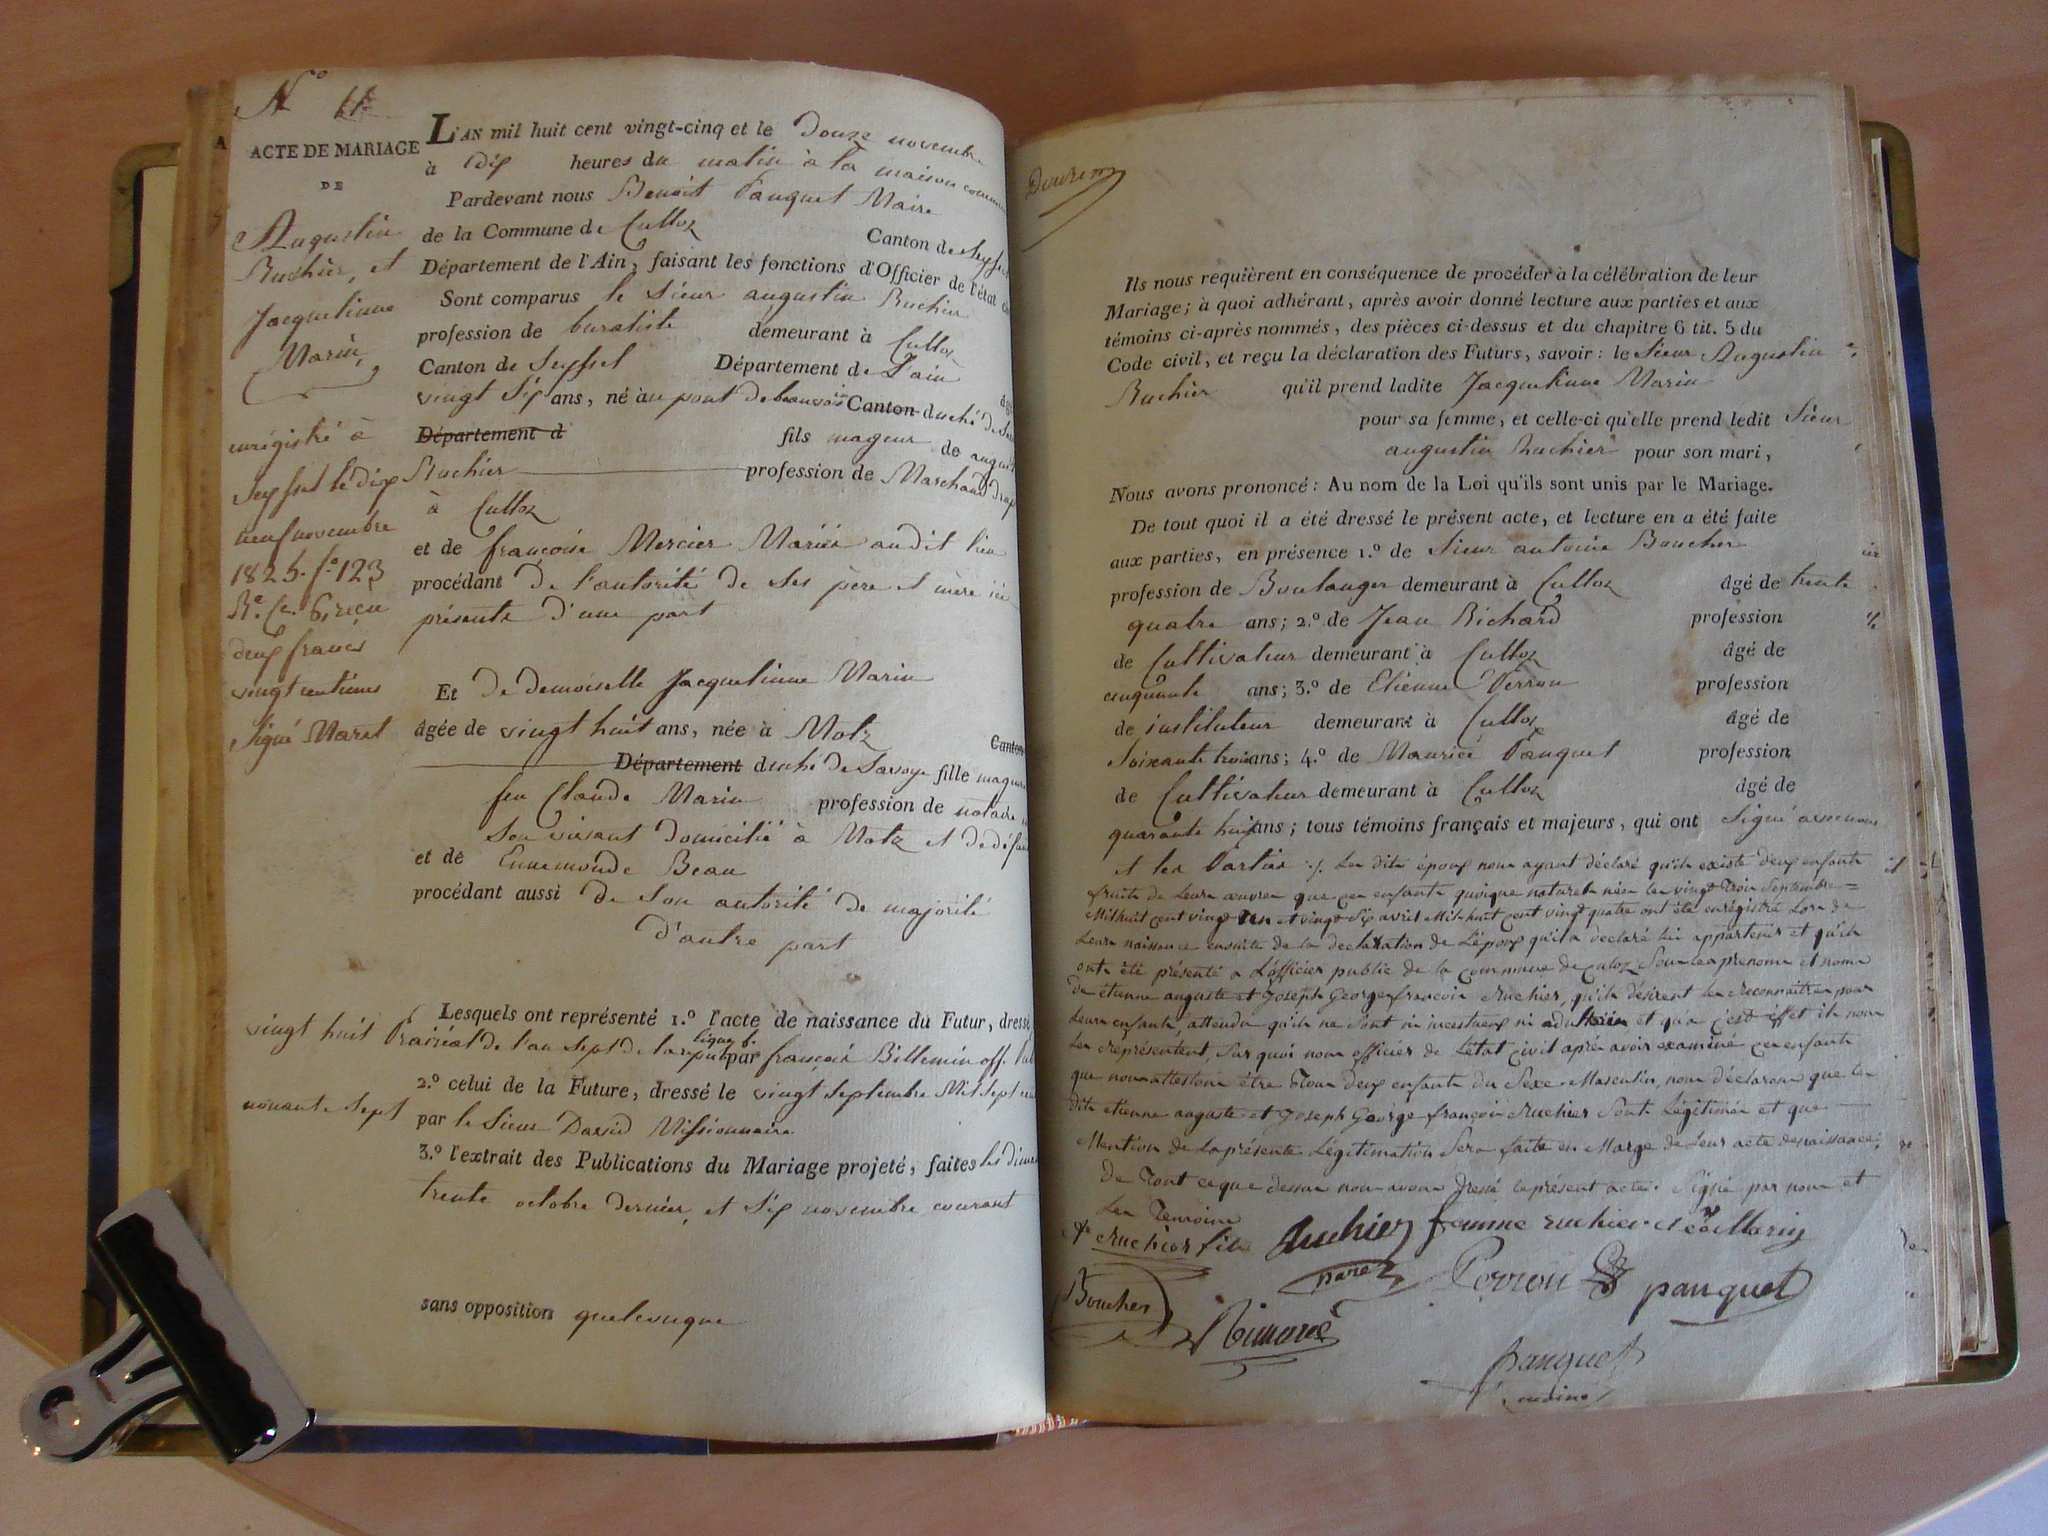 N° 11
ACTE DE MARIAGE
DE
Augustin
Ruchier, et
Jacquelinne
Marin,
enrégistré à
Seyssel le dix
neuf novembre
1825. f° 123
R° Ce. 6, reçu
deux francs
vingt centimes
Signé Maret
L'AN mil huit cent vingt-cinq et le Douze novembre
à Dix heures du matin à la maison commune
Pardevant nous Benoit Pauquet Maire
de la Commune de Culloz Canton de Seyssel
Département de l'Ain, faisant les fonctions d'Officier de l'état
Sont comparus le Sieur augustin Ruchier
profession de buraliste demeurant à Culloz
Canton de Seyssel Département de L'ain
vingt Six ans, né au pont de beauvoisin Canton duché de
Département d fils mageur de
Ruchier profession de Marchand
à Culloz
et de françoise Mercier Mariés audit lieu
procédant De l'autorité de ses père et mère ici
présents d'une part
Et De demoiselle Jacquelinne Marin
âgée de vingt huit ans, née à Motz Canton
Département duché de Savoye fille mageure
feu Claude Marin profession de notaire
Son vivant Domicilié à Motz et de
et de Ennemonde Beau
procédant aussi De Son autorité de majorité
D'autre part
Lesquels ont représenté 1.° l'acte de naissance du Futur, dressé
vingt huit Prairial de l'an Sept de la république par françois Billemin off.
2.° celui de la Future, dressé le vingt Septembre Mil Sept cent
nonante Sept par le Sieur David Missionnaire
3.° l'extrait des Publications du Mariage projeté, faites les
trente octobre dernier, et Six novembre courant
sans opposition quelconque
Douzem
Ils nous requièrent en conséquence de procéder à la célébration de leur
Mariage; à quoi adhérant, après avoir donné lecture aux parties et aux
témoins ci-après nommés, des pièces ci-dessus et du chapitre 6 tit. 5 du
Code civil, et reçu la déclaration des Futurs, savoir: le Sieur Augustin
Ruchier qu'il prend ladite Jacquelinne Marin
pour sa femme, et celle-ci qu'elle prend ledit Sieur
augustin Ruchier pour son mari,
Nous avons prononcé: Au nom de la Loi qu'ils sont unis par le Mariage.
De tout quoi il a été dressé le présent acte, et lecture en a été faite
aux parties, en présence 1.° de Sieur antoine Boucher
profession de Boulanger demeurant à Culloz âgé de trente
quatre ans; 2.° de Jean Richard profession
de Cultivateur demeurant à Culloz âgé de
cinquante ans; 3.° de Etienne Perron profession
de instituteur demeurant à Culloz âgé de
Soixante trois ans; 4.° de Maurice Pauquet profession
de Cultivateur demeurant à Culloz âgé de
quarante huit ans; tous témoins français et majeurs, qui ont Signé avec nous
et les Parties ./. Les dits époux nous ayant déclaré qu'ils existe deux enfants
fruits de Leurs œuvres que ces enfants quoique naturels nés les vingt Trois Septembre
Mil huit cent vingt un et vingt Six avril Mil-huit cent vingt quatre ont été enrégistré Lors de
Leurs naissance ensuite de la declaration de L'époux qu'il a declaré lui appartenir et qu'ils
ont été présenté a L'officier public de la Commune de Culoz Sous les prenoms et noms
de étienne auguste et Joseph George françois Ruchier, qu'ils désirent les reconnaitre pour
Leurs enfants, attendu qu'ils ne Sont ni incestueux ni adultérins et qu'a c'est effet ils nous
Les représentent, Sur quoi nous officier de L'état civil après avoir examiné ces enfants
que nous attestons être Tous deux enfants du Sexe Masculin, nous déclarons que les
dits etienne auguste et Joseph George françois Ruchier Sont Légitimés et que
Mention de La présente Légitimation Sera faite en Marge de Leur acte de naissance;
De Tout ce que dessus nous avons dressé le présent acte. Signé par nous et
Les Temoins
Ruchier fils Ruchier femme ruchier Marin
père Perron pauquet
Boucher
pauquet
maire